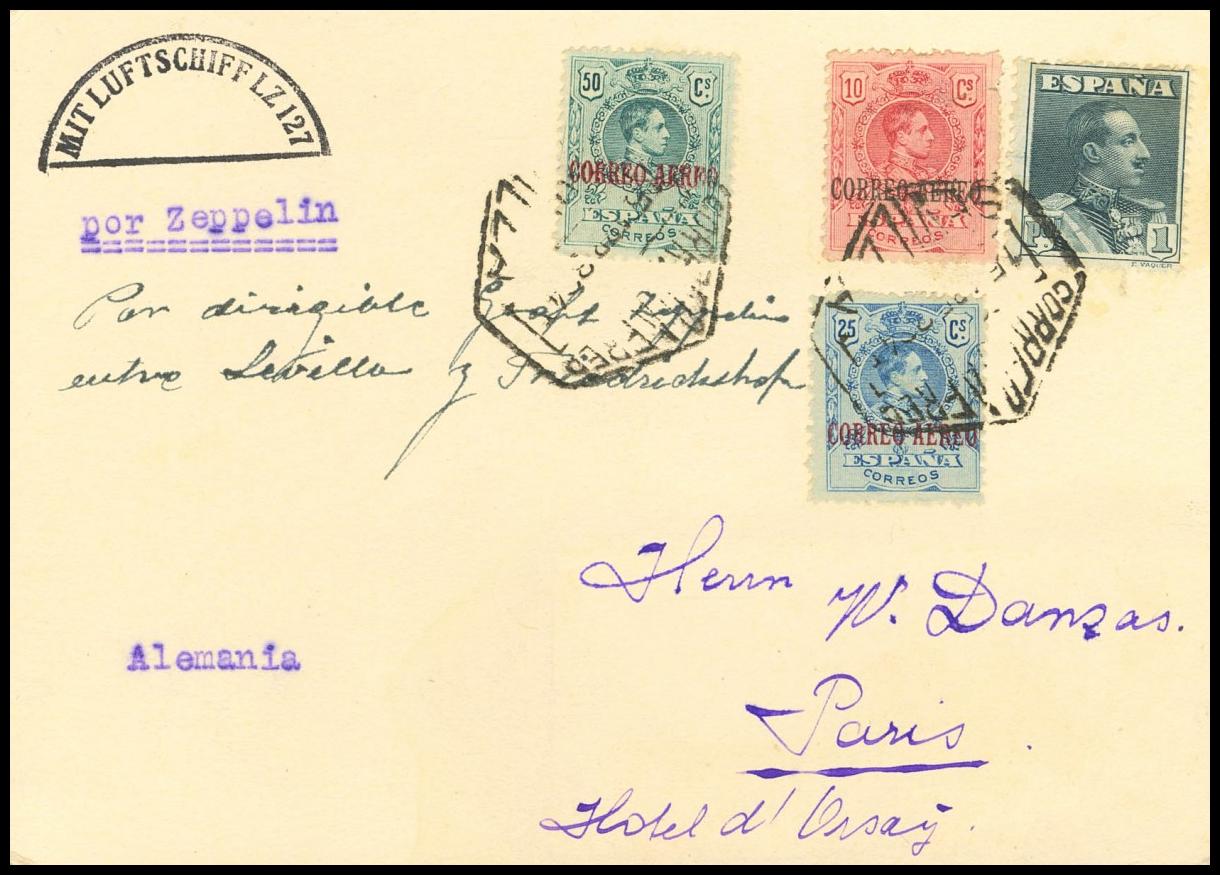 MIT LUFTSCHIFF LZ 127
por Zeppelin
Por dirigible Graft Zeppelin
entre Sevilla y Friedrickshof
50 Cs.
CORREO AEREO
ESPAÑA
CORREOS
10 Cs.
CORREO AEREO
ESPAÑA
CORREOS
ESPAÑA
Pta 1
E. VAQUER
25 Cs
CORREO AEREO
ESPAÑA
CORREOS
CORREO AEREO
Herrn W. Danzas.
Paris.
Hotel d'Orsaÿ.
Alemania